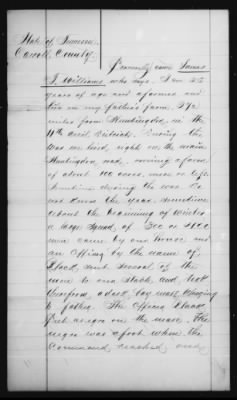 State of Tennessee
Carroll County
Personally came James
J. Williams who says I am
years of age and a farmer and
live on my father's farm, 3 1/2
miles from Huntingdon, in the
11th Civil District. During the
War we lived, right on the main
Huntingdon road, owning a farm
of about 100 acres, more or less.
Sometime during the war. Do
not know the year. Sometime
about the beginning of winter
a large squad, of 300 or 400
men came by our house and
an officer by the name of,
Black, sent several of the
men to our stable and took
therefrom, a dark bay mare, belonging
to father. The Officer Black
put a negro on the mare. The
negro was afoot when the
Command reached our